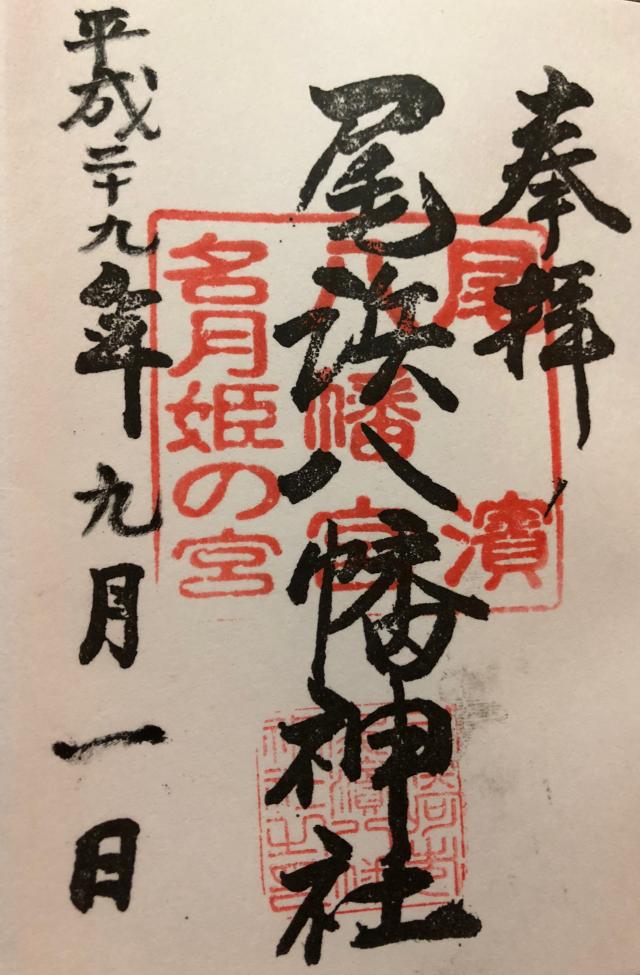 奉拝
尾浜八幡神社
平成二十九年九月一日
尾濱
八幡宮
名月姫の宮